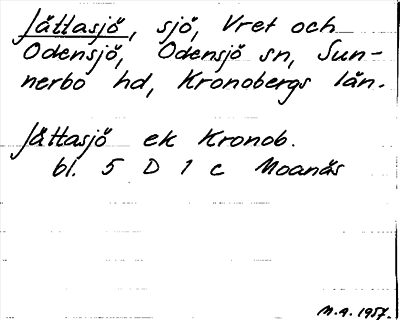 Jättasjö, sjö, Vret och
Odensjö, Odensjö sn, Sun-
nerbo hd, Kronobergs län.
Jättasjö ek Kronob.
bl. 5 D 1 c Moanäs
M.A. 1957.